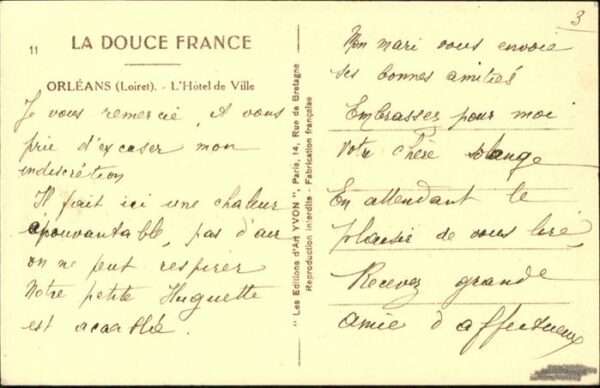 11
LA DOUCE FRANCE
ORLÉANS (Loiret). - L'Hôtel de Ville
Je vous remercie, et vous
prie d'excuser mon
indiscrétion
Il fait ici une chaleur
épouvantable, pas d'air
on ne peut respirer
Notre petite Huguette
est
"Les Editions d'Art YVON", Paris, 14, Rue de Bretagne
Reproduction interdite - Fabrication française
3
Mon mari vous envoie
ses bonnes amitiés
Embrassez pour moi
votre chère
En attendant le
plaisir de vous lire,
Recevez grande
amie d'affectueux